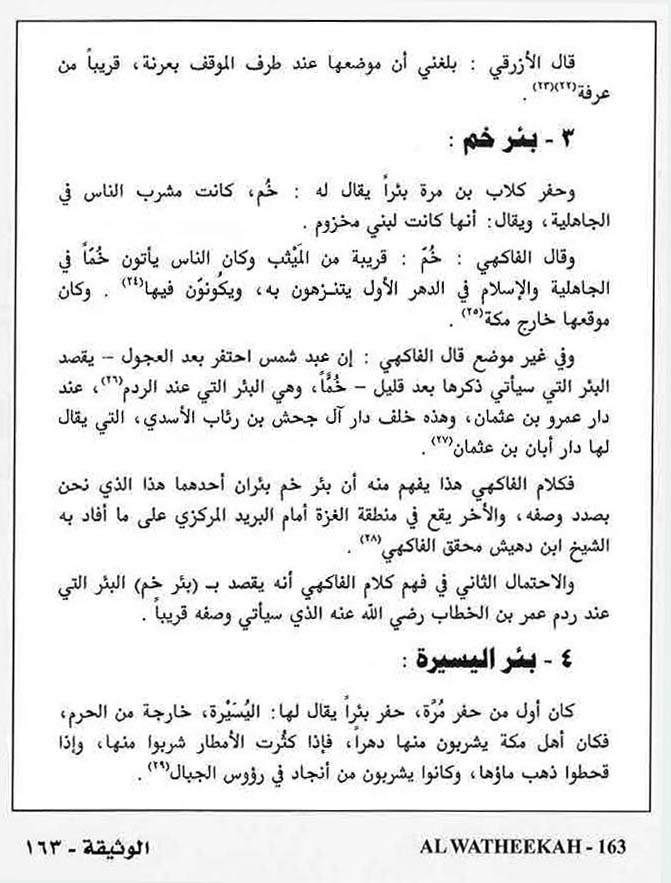 قال الأزرقي : بلغني أن موضعها عند طرف الموقف بعرنة، قريباً من
عرفة(٢٢)(٢٣) .
٣ - بئر خم :
وحفر كلاب بن مرة بئراً يقال له : خُم، كانت مشرب الناس في
الجاهلية، ويقال: أنها كانت لبني مخزوم .
وقال الفاكهي : خُمّ : قريبة من المَيْثب وكان الناس يأتون خُمّاً في
الجاهلية والإسلام في الدهر الأول يتنـزهون به، ويكُونوّن فيها(٢٤) . وكان
موقعها خارج مكة(٢٥) .
وفي غير موضع قال الفاكهي : إن عبد شمس احتفر بعد العجول – يقصد
البئر التي سيأتي ذكرها بعد قليل – خُمًّا، وهي البئر التي عند الردم(٢٦)، عند
دار عمرو بن عثمان، وهذه خلف دار آل جحش بن رئاب الأسدي، التي يقال
لها دار أبان بن عثمان(٢٧) .
فكلام الفاكهي هذا يفهم منه أن بئر خم بئران أحدهما هذا الذي نحن
بصدد وصفه، والأخر يقع في منطقة الغزة أمام البريد المركزي على ما أفاد به
الشيخ ابن دهيش محقق الفاكهي(٢٨) .
والاحتمال الثاني في فهم كلام الفاكهي أنه يقصد بـ (بئر خم) البئر التي
عند ردم عمر بن الخطاب رضي الله عنه الذي سيأتي وصفه قريباً .
٤ - بئر اليسيرة :
كان أول من حفر مُرَّة، حفر بئراً يقال لها: اليُسَيْرة، خارجة من الحرم،
فكان أهل مكة يشربون منها دهراً، فإذا كثُرت الأمطار شربوا منها، وإذا
قحطوا ذهب ماؤها، وكانوا يشربون من أنجاد في رؤوس الجبال(٢٩) .
الوثيقة - ١٦٣
AL WATHEEKAH - 163